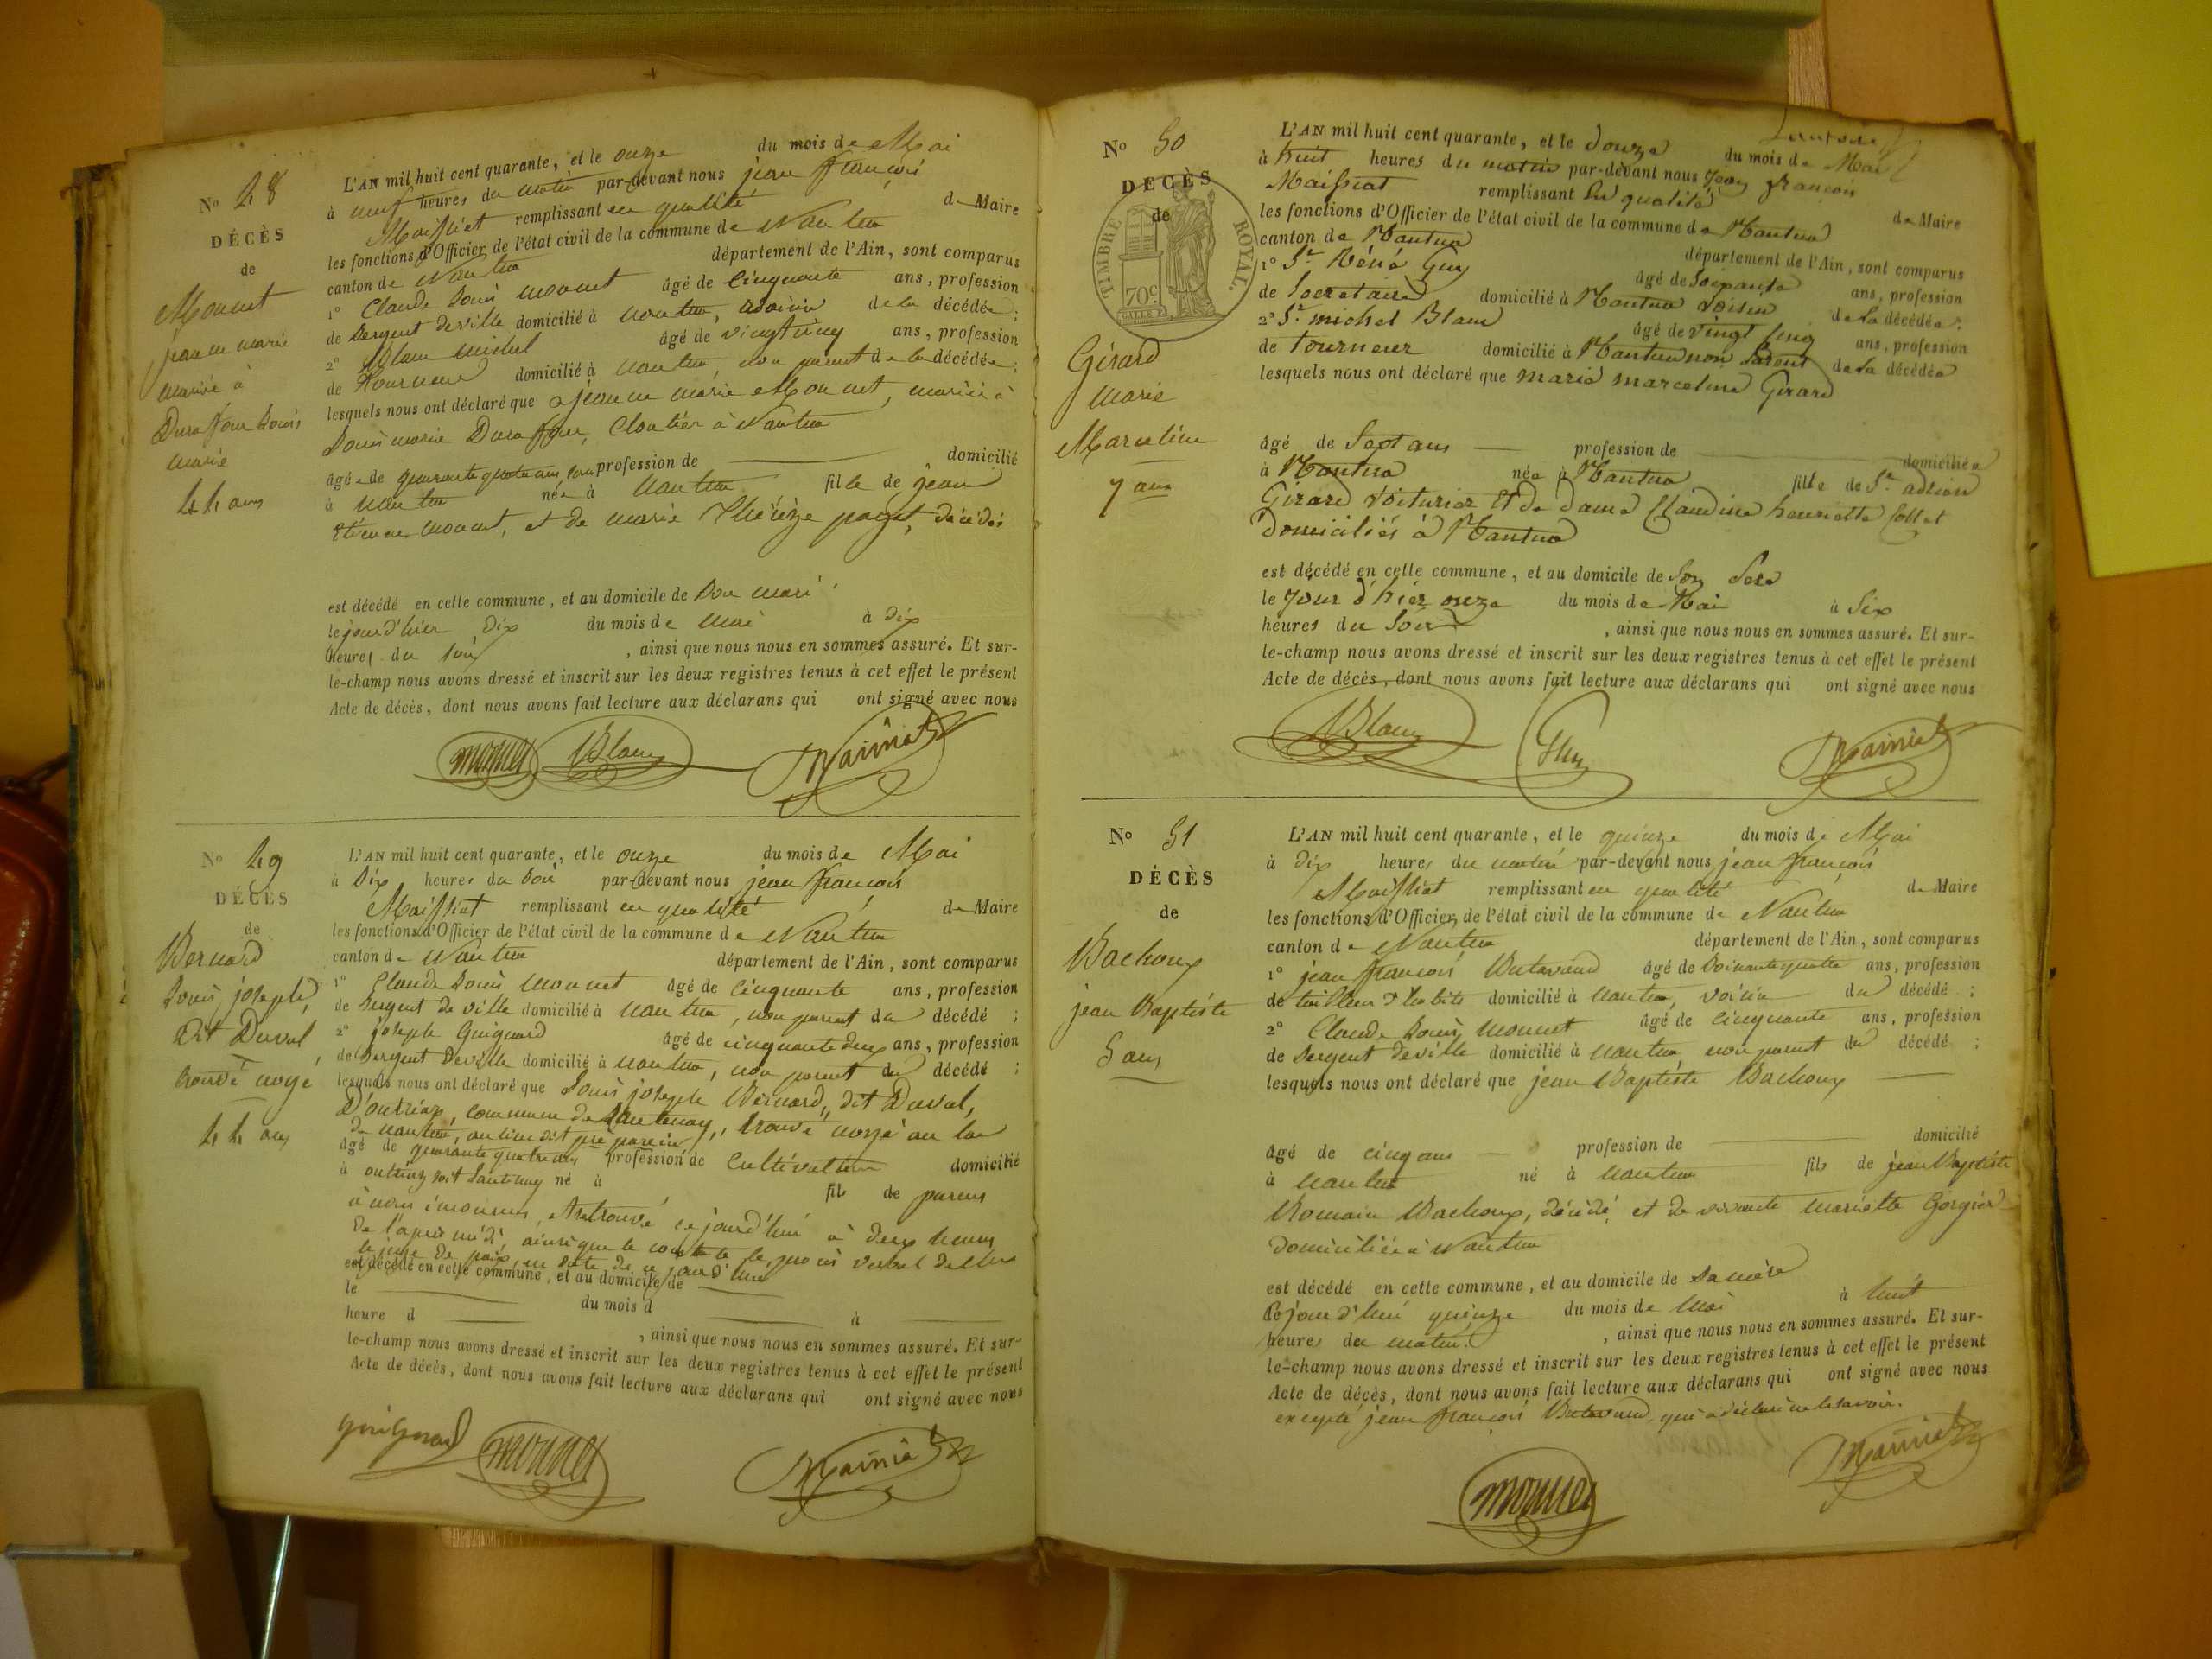 N° 48
DÉCÈS
de
Monnet
jeanne marie
mariée à
Duraffour Louis
marie
44 ans
L'AN mil huit cent quarante, et le onze du mois de Mai
à neuf heures du matin par-devant nous jean françois
Maissiat remplissant en qualité de Maire
les fonctions d'Officier de l'état civil de la commune de Nantua
canton de Nantua département de l'Ain, sont comparus
1° Claude Louis monnet âgé de cinquante ans, profession
de Sergent de ville domicilié à nantua, voisin de la décédée ;
2° Blanc Michel âgé de vingt cinq ans, profession
de Tourneur domicilié à nantua, non parent de la décédée ;
lesquels nous ont déclaré que jeanne marie Monnet, mariée à
Louis marie Duraffour, Cloutier à Nantua
âgée de quarante quatre ans, sans profession de domicilié
à nantua née à nantua fille de jean
Etienne monnet, et de marie Thérèze payet, décédés
est décédé en cette commune, et au domicile de Son mari
le jour d'hier dix du mois de mai à dix
heures du soir , ainsi que nous nous en sommes assuré. Et sur-
le-champ nous avons dressé et inscrit sur les deux registres tenus à cet effet le présent
Acte de décès, dont nous avons fait lecture aux déclarans qui ont signé avec nous
monnet Blanc Maissiat
N° 49
DÉCÈS
de
Bernard
Louis joseph,
Dit Duval,
trouvé noyé
44 ans
L'AN mil huit cent quarante, et le onze du mois de Mai
à Dix heures du soir par-devant nous jean françois
Maissiat remplissant en qualité de Maire
les fonctions d'Officier de l'état civil de la commune de Nantua
canton de Nantua département de l'Ain, sont comparus
1° Claude Louis monnet âgé de cinquante ans, profession
de Sergent de ville domicilié à nantua, non parent du décédé ;
2° joseph Guignard âgé de cinquante deux ans, profession
de Sergent de ville domicilié à nantua, non parent du décédé ;
lesquels nous ont déclaré que Louis joseph Bernard, dit Duval,
D'outriaz, commune de Lantenay, trouvé noyé au lac
de nantua, au lieu dit pré
âgé de quarante quatre ans profession de Cultivateur domicilié
à outriaz soit Lantenay né à fils de parens
à nous inconnus, trouvé ce jourd'hui à deux heures
de l'après midi, ainsi que le constate le procès verbal de Mr
le juge de paix, en date de ce jourd'hui
est décédé en cette commune, et au domicile de
le du mois d
heure d à
, ainsi que nous nous en sommes assuré. Et sur-
le-champ nous avons dressé et inscrit sur les deux registres tenus à cet effet le présent
Acte de décès, dont nous avons fait lecture aux déclarans qui ont signé avec nous
guignard monnet Maissiat
N° 50
DÉCÈS
de
TIMBRE ROYAL.
70c
Girard
Marie
Marceline
7 ans
L'AN mil huit cent quarante, et le Douze du mois de Mai
à huit heures du matin par-devant nous Jean françois
Maissiat remplissant En qualité de Maire
les fonctions d'Officier de l'état civil de la commune de Nantua
canton de Nantua département de l'Ain, sont comparus
1° Sr. Réné Guy âgé de Soixante ans, profession
de Secretaire domicilié à Nantua Voisin de la décédée ;
2° Sr. michel Blanc âgé de vingt cinq ans, profession
de tourneur domicilié à Nantua non parent de la décédée
lesquels nous ont déclaré que marie marceline Girard
âgé de Sept ans profession de domiciliée
à Nantua née à Nantua fille de Sr. adrien
Girard Voiturier Et de dame Claudine henriette Collet
Domiciliés à Nantua
est décédé en cette commune, et au domicile de Son Père
le Jour d'hier onze du mois de Mai à Six
heures du Soir , ainsi que nous nous en sommes assuré. Et sur-
le-champ nous avons dressé et inscrit sur les deux registres tenus à cet effet le présent
Acte de décès, dont nous avons fait lecture aux déclarans qui ont signé avec nous
Blanc Guy Maissiat
N° 51
DÉCÈS
de
Bachoux
jean Baptiste
5 ans
L'AN mil huit cent quarante, et le quinze du mois de Mai
à dix heures du matin par-devant nous jean françois
Maissiat remplissant en qualité de Maire
les fonctions d'Officier de l'état civil de la commune de Nantua
canton de Nantua département de l'Ain, sont comparus
1° jean françois Butavand âgé de Soixante quatre ans, profession
de tailleur d'habits domicilié à nantua, voisin du décédé ;
2° Claude Louis Monnet âgé de cinquante ans, profession
de Sergent de ville domicilié à nantua non parent du décédé ;
lesquels nous ont déclaré que jean Baptiste Bachoux
âgé de cinq ans profession de domicilié
à nantua né à nantua fils de jean Baptiste
Romain Bachoux, décédé, et de vivante mariette Gorgier
Domiciliée à Nantua
est décédé en cette commune, et au domicile de Sa mère
le jour d'hui quinze du mois de Mai à huit
heures du matin. , ainsi que nous nous en sommes assuré. Et sur-
le-champ nous avons dressé et inscrit sur les deux registres tenus à cet effet le présent
Acte de décès, dont nous avons fait lecture aux déclarans qui ont signé avec nous
excepté jean françois Butavand qui a déclaré ne le savoir.
monnet Maissiat